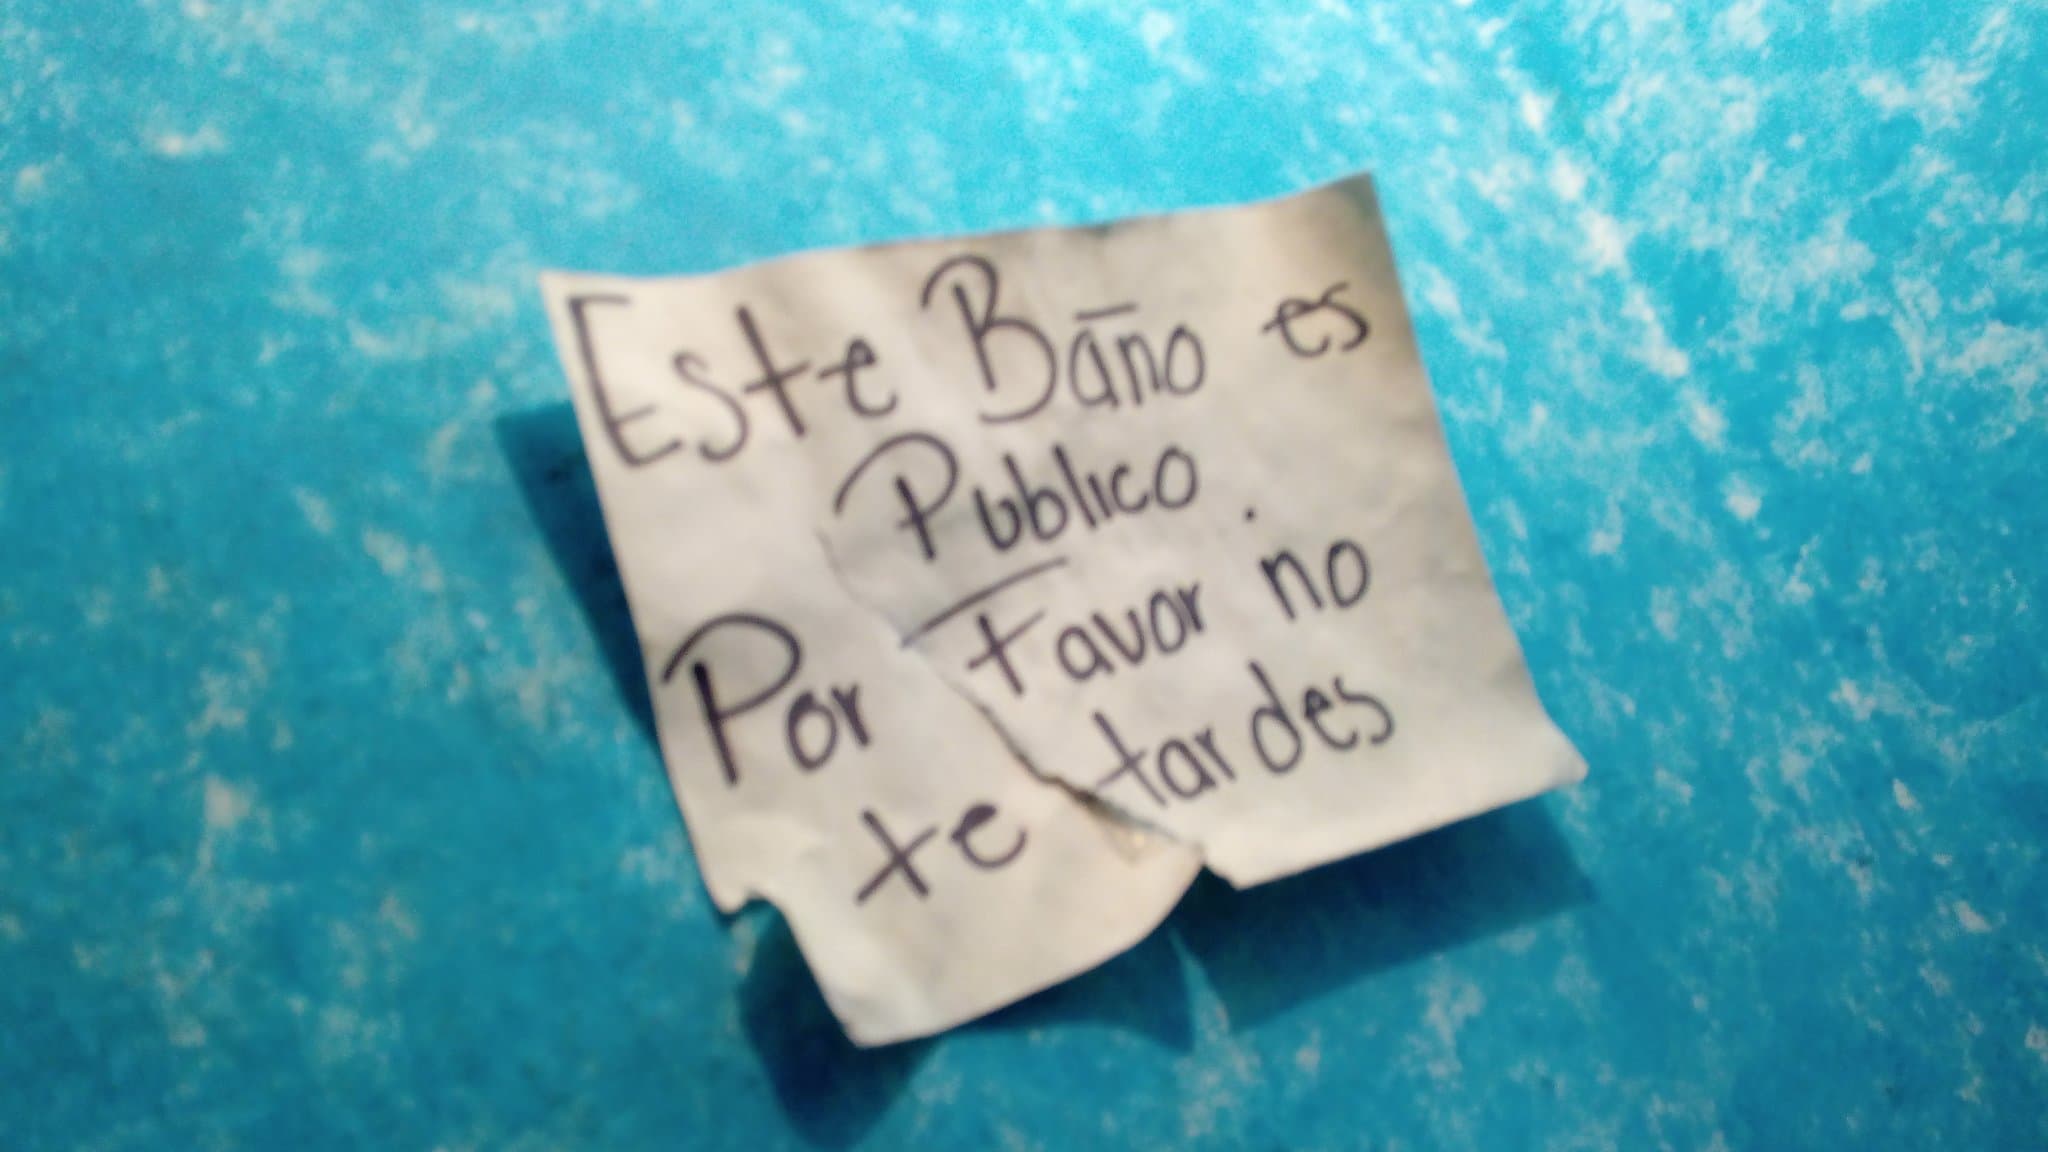 Este Baño es
Publico.
Por Favor no
te tardes